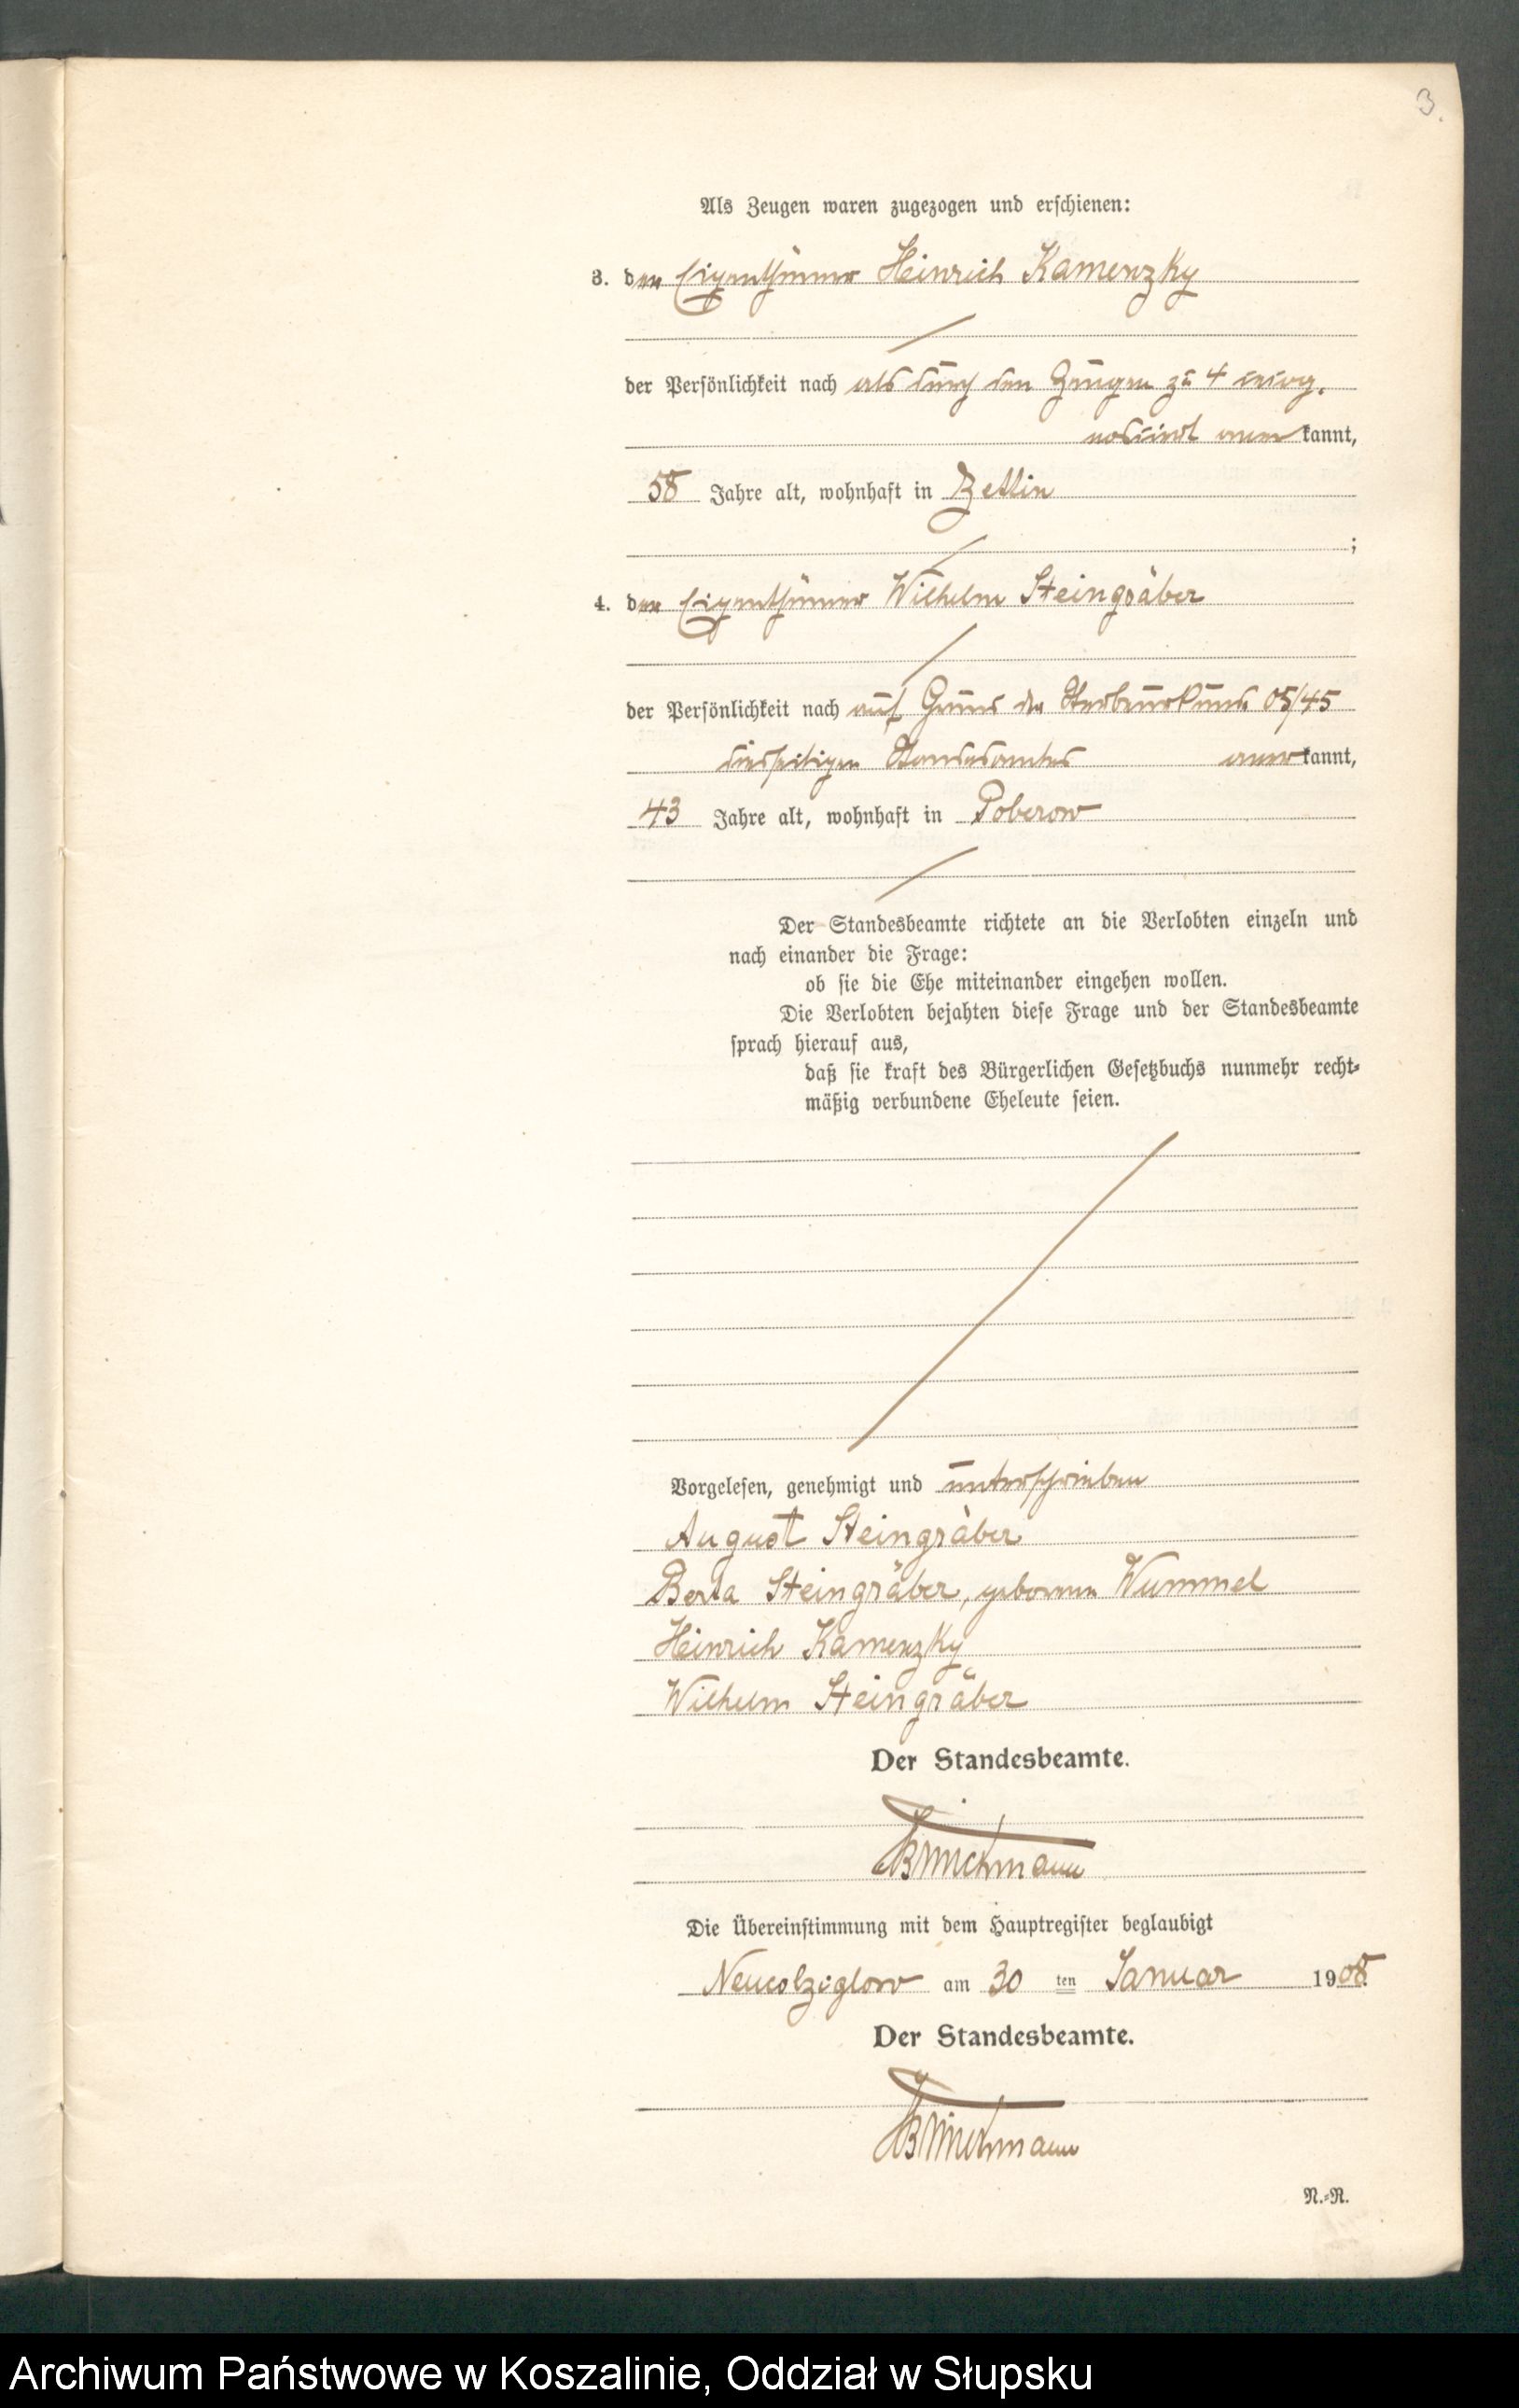 3.
Als Zeugen waren zugezogen und erschienen:
3. der Eigenthümer Heinrich Kamenzky
der Persönlichkeit nach als durch den Zeugen zu 4
anerkannt,
58 Jahre alt, wohnhaft in Zettin
;
4. der Eigenthümer Wilhelm Steingräber
der Persönlichkeit nach auf Grund der Sterbeurkunde 05/45
diesseitigen Standesamtes anerkannt,
43 Jahre alt, wohnhaft in Poberow
Der Standesbeamte richtete an die Verlobten einzeln und
nach einander die Frage:
ob sie die Ehe miteinander eingehen wollen.
Die Verlobten bejahten diese Frage und der Standesbeamte
sprach hierauf aus,
daß sie kraft des Bürgerlichen Gesetzbuchs nunmehr recht-
mäßig verbundene Eheleute seien.
Vorgelesen, genehmigt und unterschrieben
August Steingräber
Berta Steingräber, geborene Wummel
Heinrich Kamenzky
Wilhelm Steingräber
Der Standesbeamte.
Die Übereinstimmung mit dem Hauptregister beglaubigt
Neukolziglow am 30 ten Januar 1908.
Der Standesbeamte.
N.-R.
Archiwum Państwowe w Koszalinie, Oddział w Słupsku